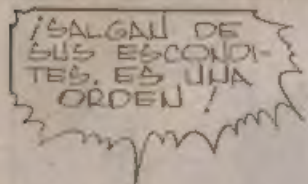 ¡SALGAN DE
SUS ESCONDI-
TES. ES UNA
ORDEN!